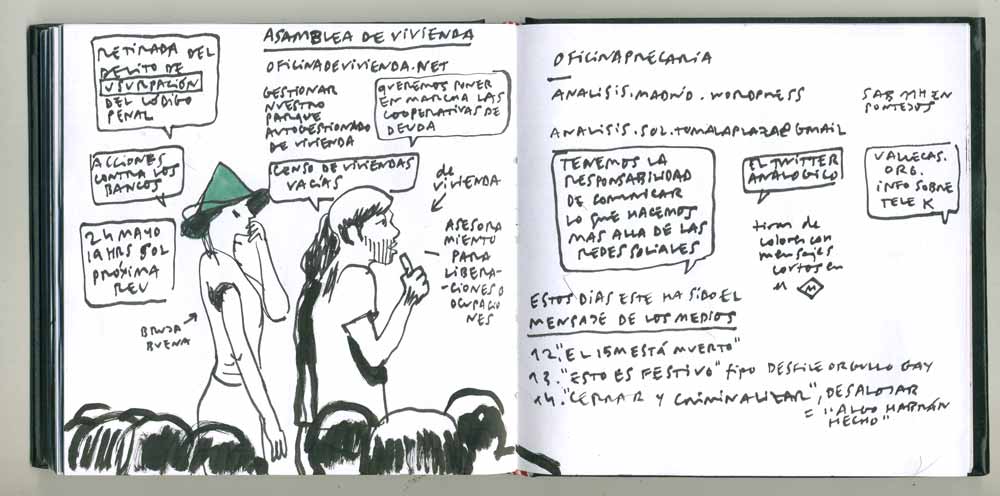 ASAMBLEA DE VIVIENDA
OFICINADEVIVIENDA.NET
RETIRADA DEL
DELITO DE
USURPACIÓN
DEL CÓDIGO
PENAL
GESTIONAR
NUESTRO
PARQUE
AUTOGESTIONADO
DE VIVIENDA
QUEREMOS PONER
EN MARCHA LAS
COOPERATIVAS DE
DEUDA
ACCIONES
CONTRA LOS
BANCOS
CENSO DE VIVIENDAS
VACÍAS
de
VIVIENDA
24 MAYO
19 HRS SOL
PRÓXIMA
REU
ASESORA
MIENTO
PARA
LIBERA-
CIONES O
OCUPACIO
NES
BRUJA
BUENA
OFICINAPRECARIA
ANALISIS.MADRID.WORDPRESS
SAB MHZ EN
PONTEJOS
ANALISIS.SOL.TOMALAPLAZA@GMAIL
TENEMOS LA
RESPONSABILIDAD
DE COMUNICAR
LO QUE HACEMOS
MAS ALLA DE LAS
REDES SOCIALES
EL TWITTER
ANALOGICO
tiras de
colores con
mensajes
cortos en
el M
VALLECAS.
ORG.
INFO SOBRE
TELE K
ESTOS DIAS ESTE HA SIDO EL
MENSAJE DE LOS MEDIOS
12. "EL 15M ESTÁ MUERTO"
13. "ESTO ES FESTIVO" tipo DESFILE ORGULLO GAY
14. "CERRAR Y CRIMINALIZAR", DESALOJAR
= "ALGO HABRÁN
HECHO"